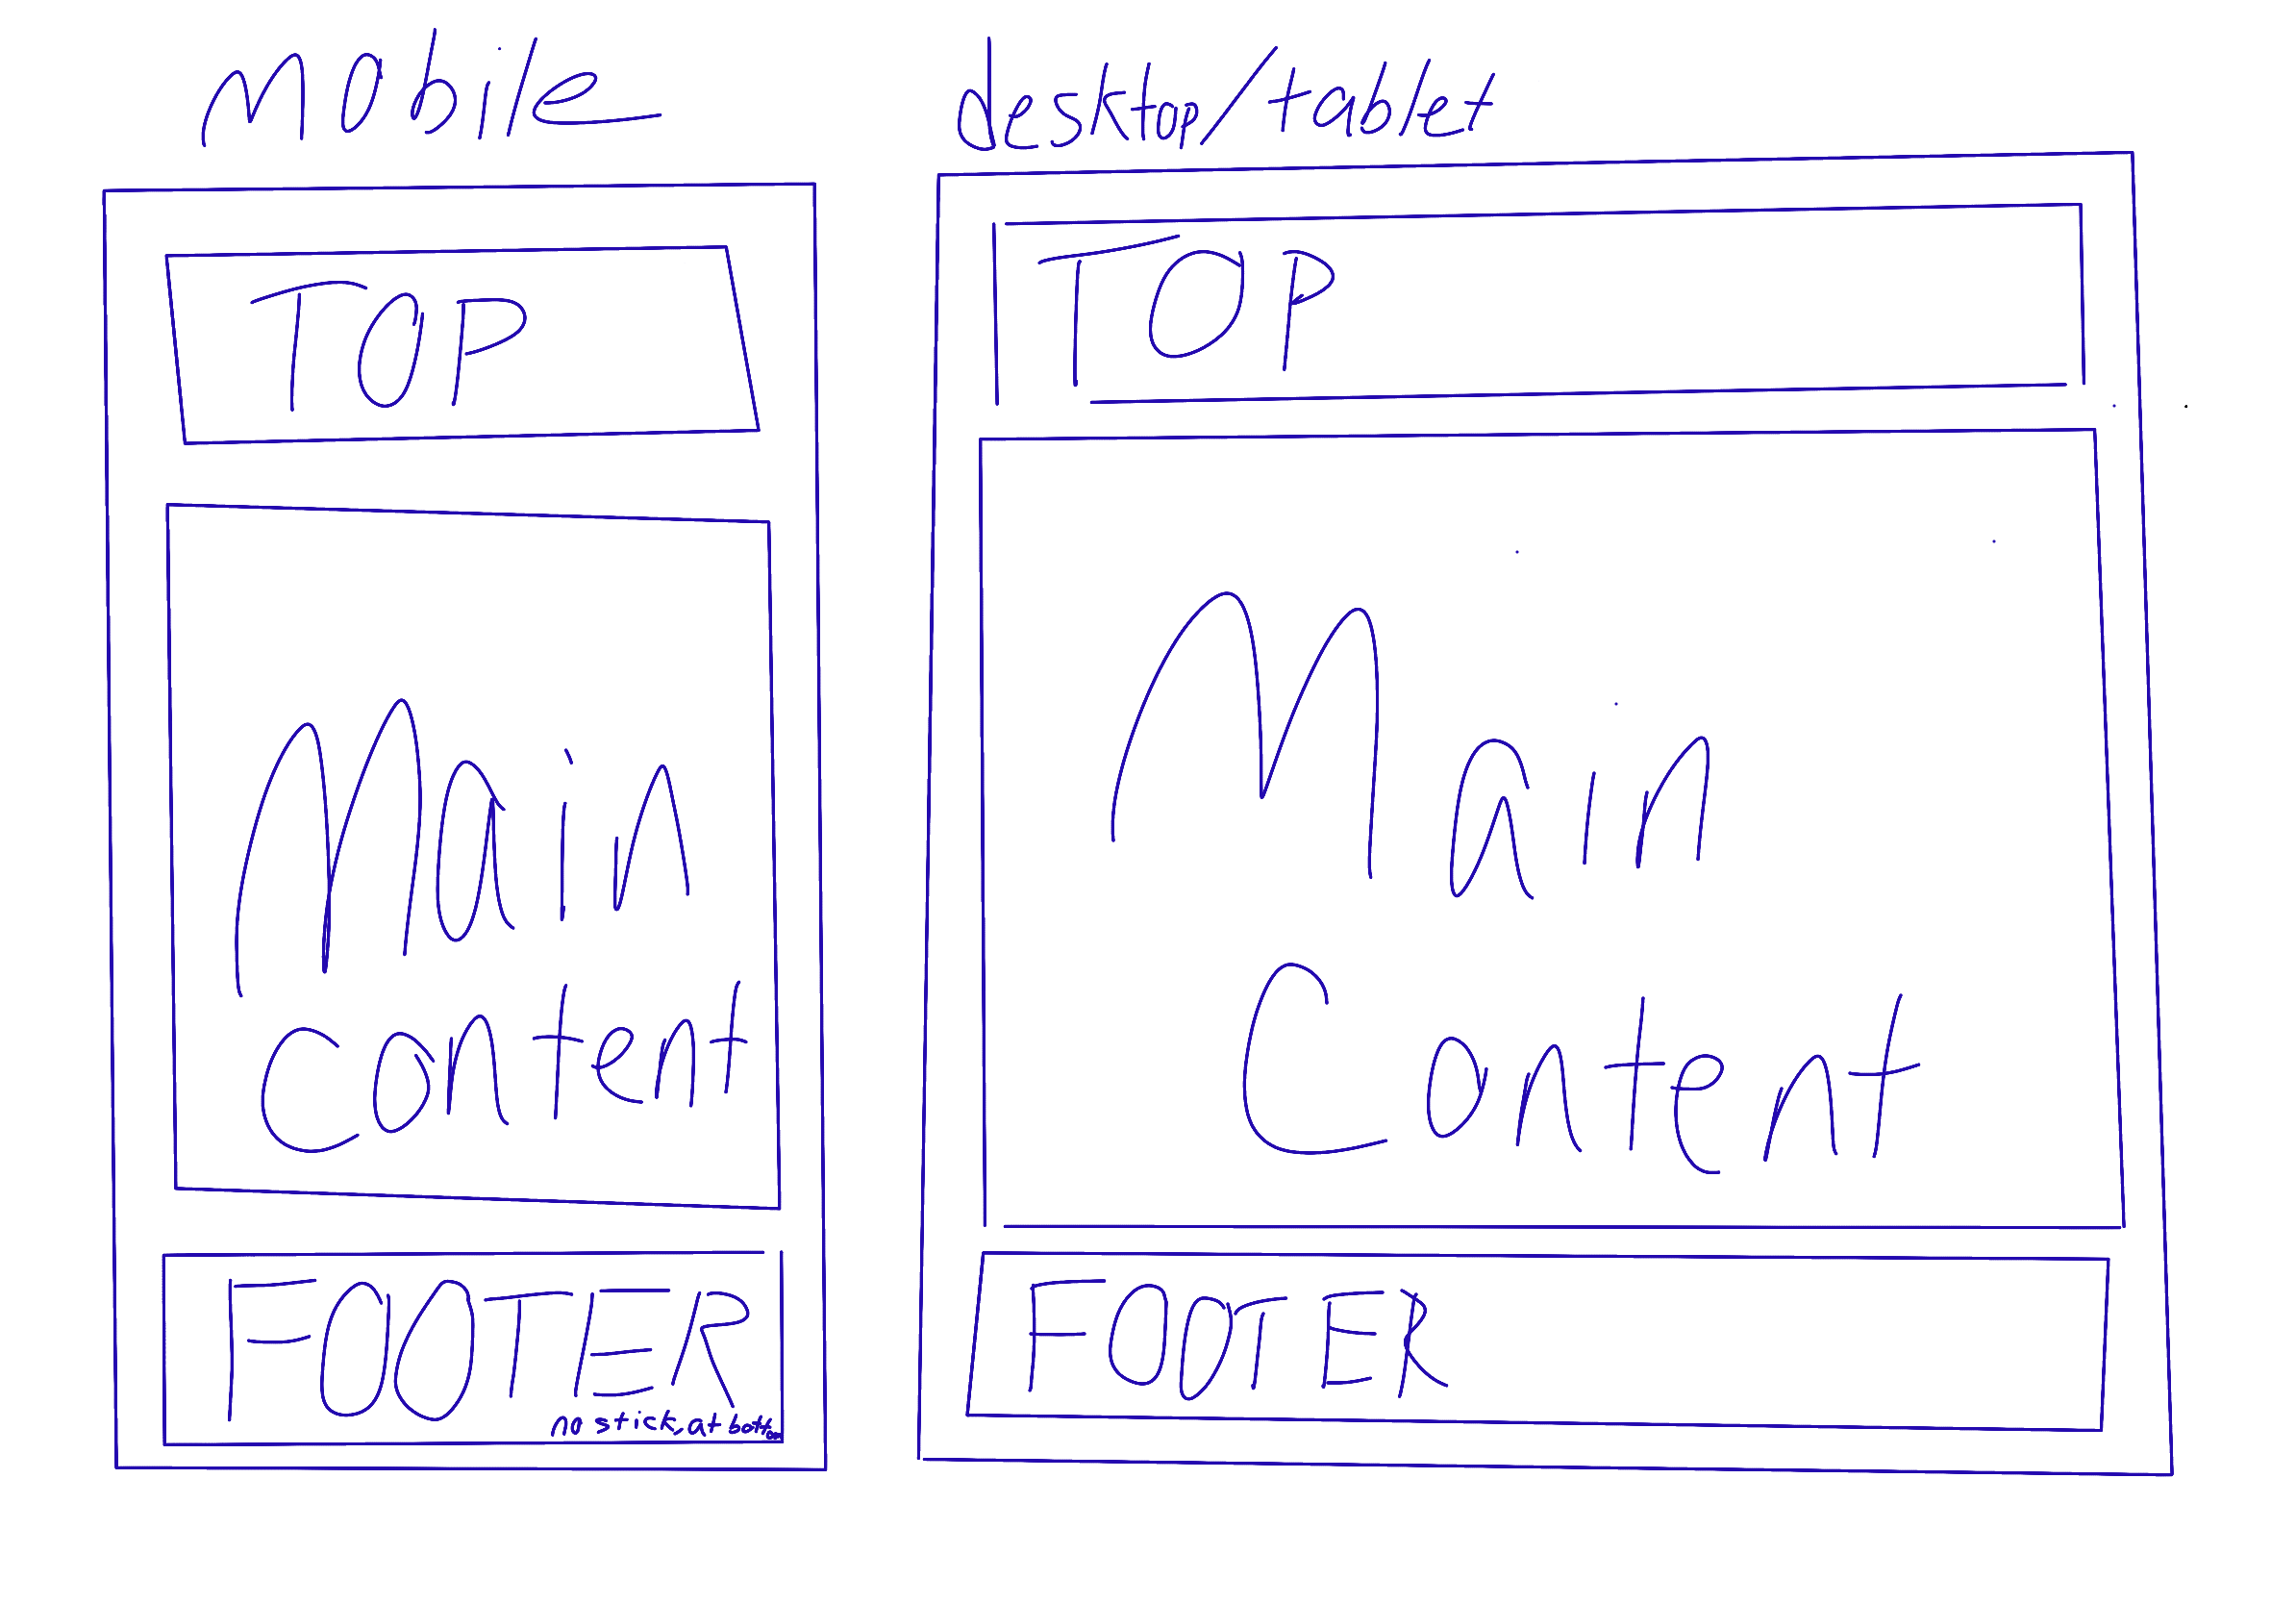 mobile
TOP
Main
content
FOOTER
no stick, at bottom
desktop/tablet
TOP
Main
Content
FOOTER